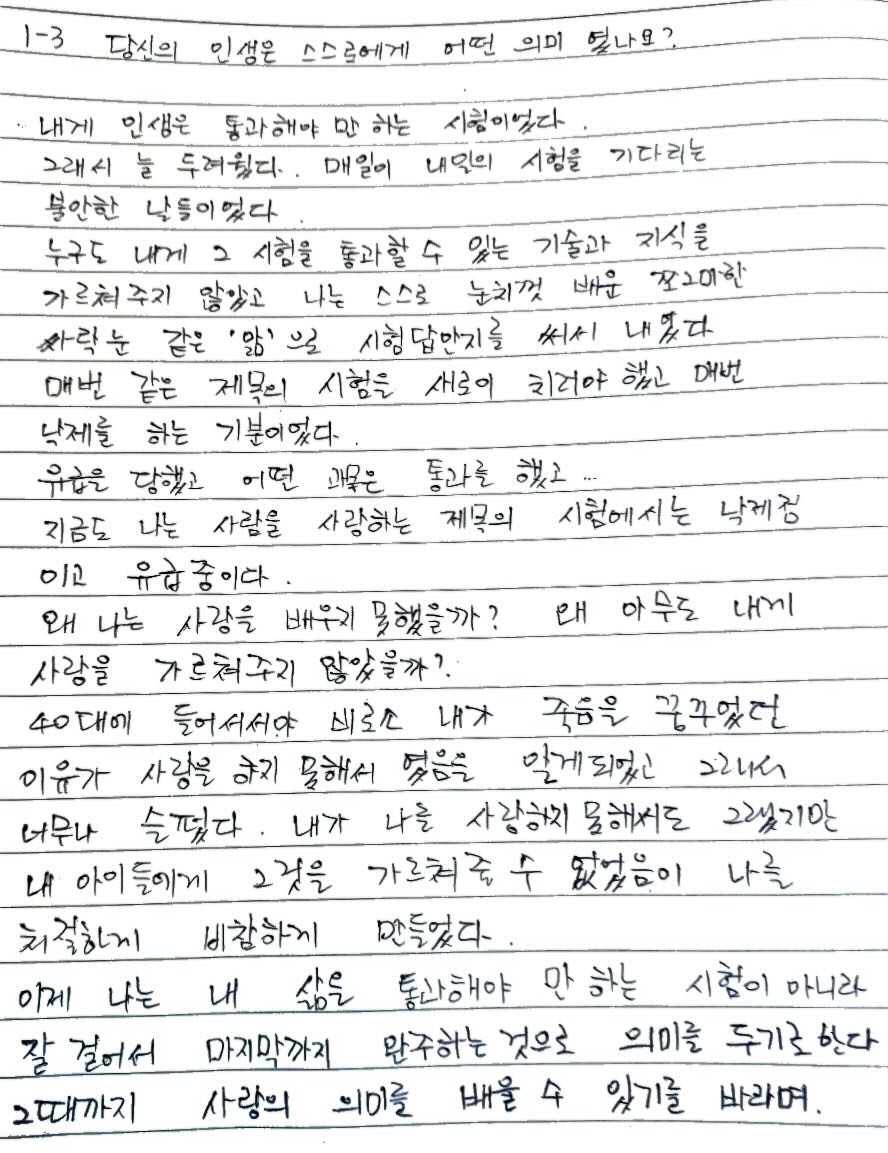 1-3 당신의 인생은 스스로에게 어떤 의미 였나요?
내게 인생은 통과해야 만 하는 시험이었다.
그래서 늘 두려웠다. 매일이 내일의 시험을 기다리는
불안한 날들이었다.
누구도 내게 그 시험을 통과할 수 있는 기술과 지식을
가르쳐주지 않았고 나는 스스로 눈치껏 배운 쪼그마한
싸락눈 같은 '앎'으로 시험답안지를 써서 내었다
매번 같은 제목의 시험을 새로이 치러야 했고 매번
낙제를 하는 기분이었다.
유급을 당했고 어떤 과목은 통과를 했고...
지금도 나는 사람을 사랑하는 제목의 시험에서는 낙제점
이고 유급중이다.
왜 나는 사랑을 배우지 못했을까? 왜 아무도 내게
사랑을 가르쳐주지 않았을까?
40대에 들어서서야 비로소 내가 죽음을 꿈꾸었던
이유가 사랑을 하지 못해서 였음을 알게되었고 그래서
너무나 슬펐다. 내가 나를 사랑하지 못해서도 그랬지만
내 아이들에게 그것을 가르쳐 줄 수 없었음이 나를
처절하게 비참하게 만들었다.
이제 나는 내 삶을 통과해야 만 하는 시험이 아니라
잘 걸어서 마지막까지 완주하는 것으로 의미를 두기로 한다
그때까지 사랑의 의미를 배울 수 있기를 바라며.